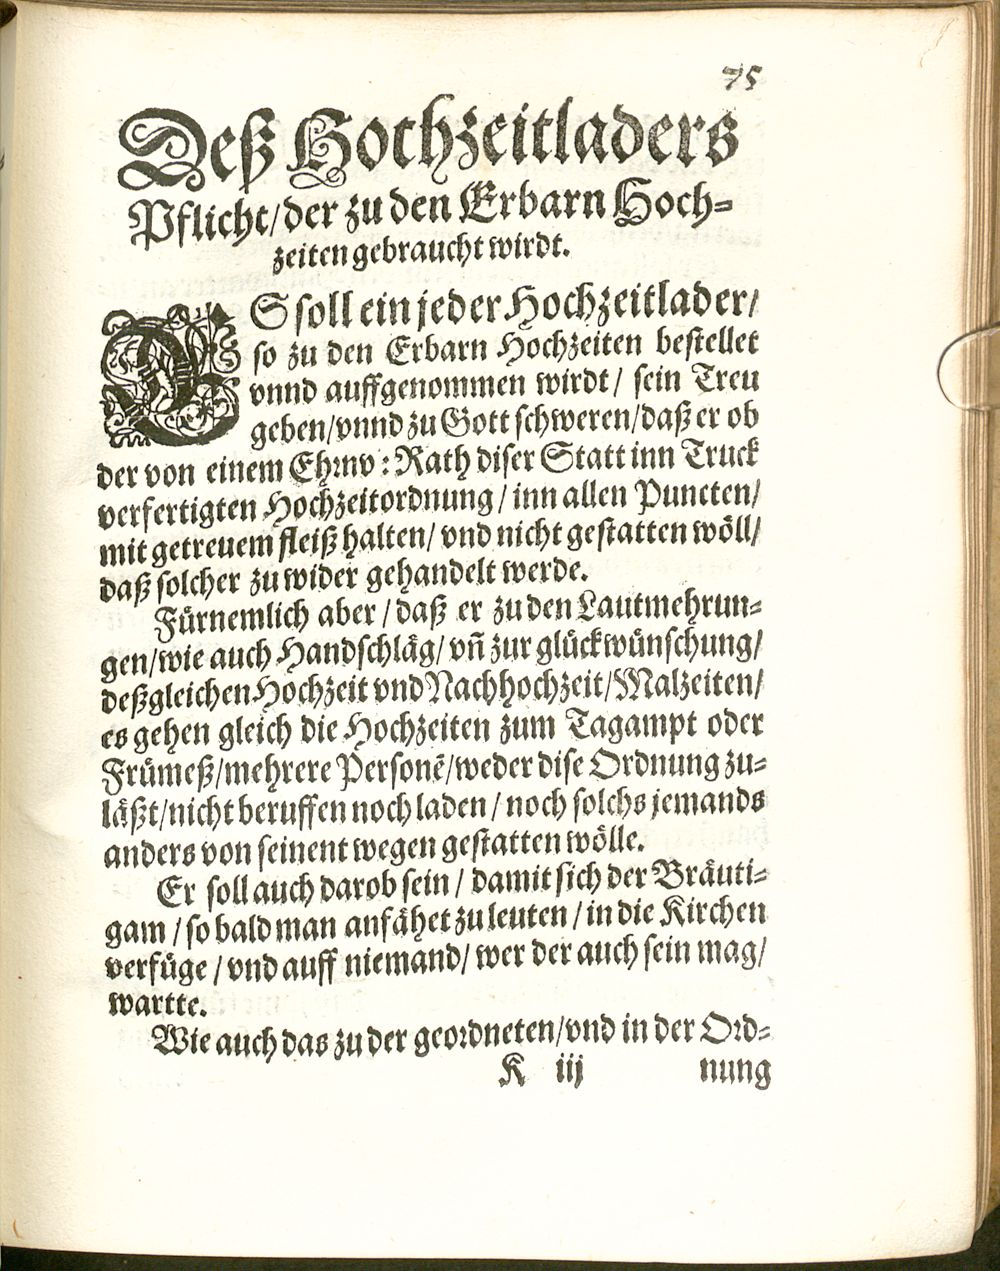 75
Deß Hochzeitladers
Pflicht/der zu den Erbarn Hoch-
zeiten gebraucht wirdt.
ES soll ein jeder Hochzeitlader/
so zu den Erbarn Hochzeiten bestellet
vnnd auffgenommen wirdt/ sein Treu
geben/vnnd zu Gott schweren/daß er ob
der von einem Ehrnv: Rath diser Statt inn Truck
verfertigten Hochzeitordnung/ inn allen Puncten/
mit getreuem fleiß halten/ vnd nicht gestatten wöll/
daß solcher zu wider gehandelt werde.
Fürnemlich aber/daß er zu den Lautmehrun-
gen/wie auch Handschläg/ vñ zur glückwünschung/
deßgleichen Hochzeit vnd Nachhochzeit/Malzeiten/
es gehen gleich die Hochzeiten zum Tagampt oder
Frümeß/mehrere Personē/weder dise Ordnung zu-
läßt/nicht beruffen noch laden/noch solchs jemands
anders von seinent wegen gestatten wölle.
Er soll auch darob sein/ damit sich der Bräuti-
gam/so bald man anfähet zu leuten/in die Kirchen
verfüge/vnd auff niemand/ wer der auch sein mag/
wartte.
Wie auch das zu der geordneten/vnd in der Ord-
K iij nung